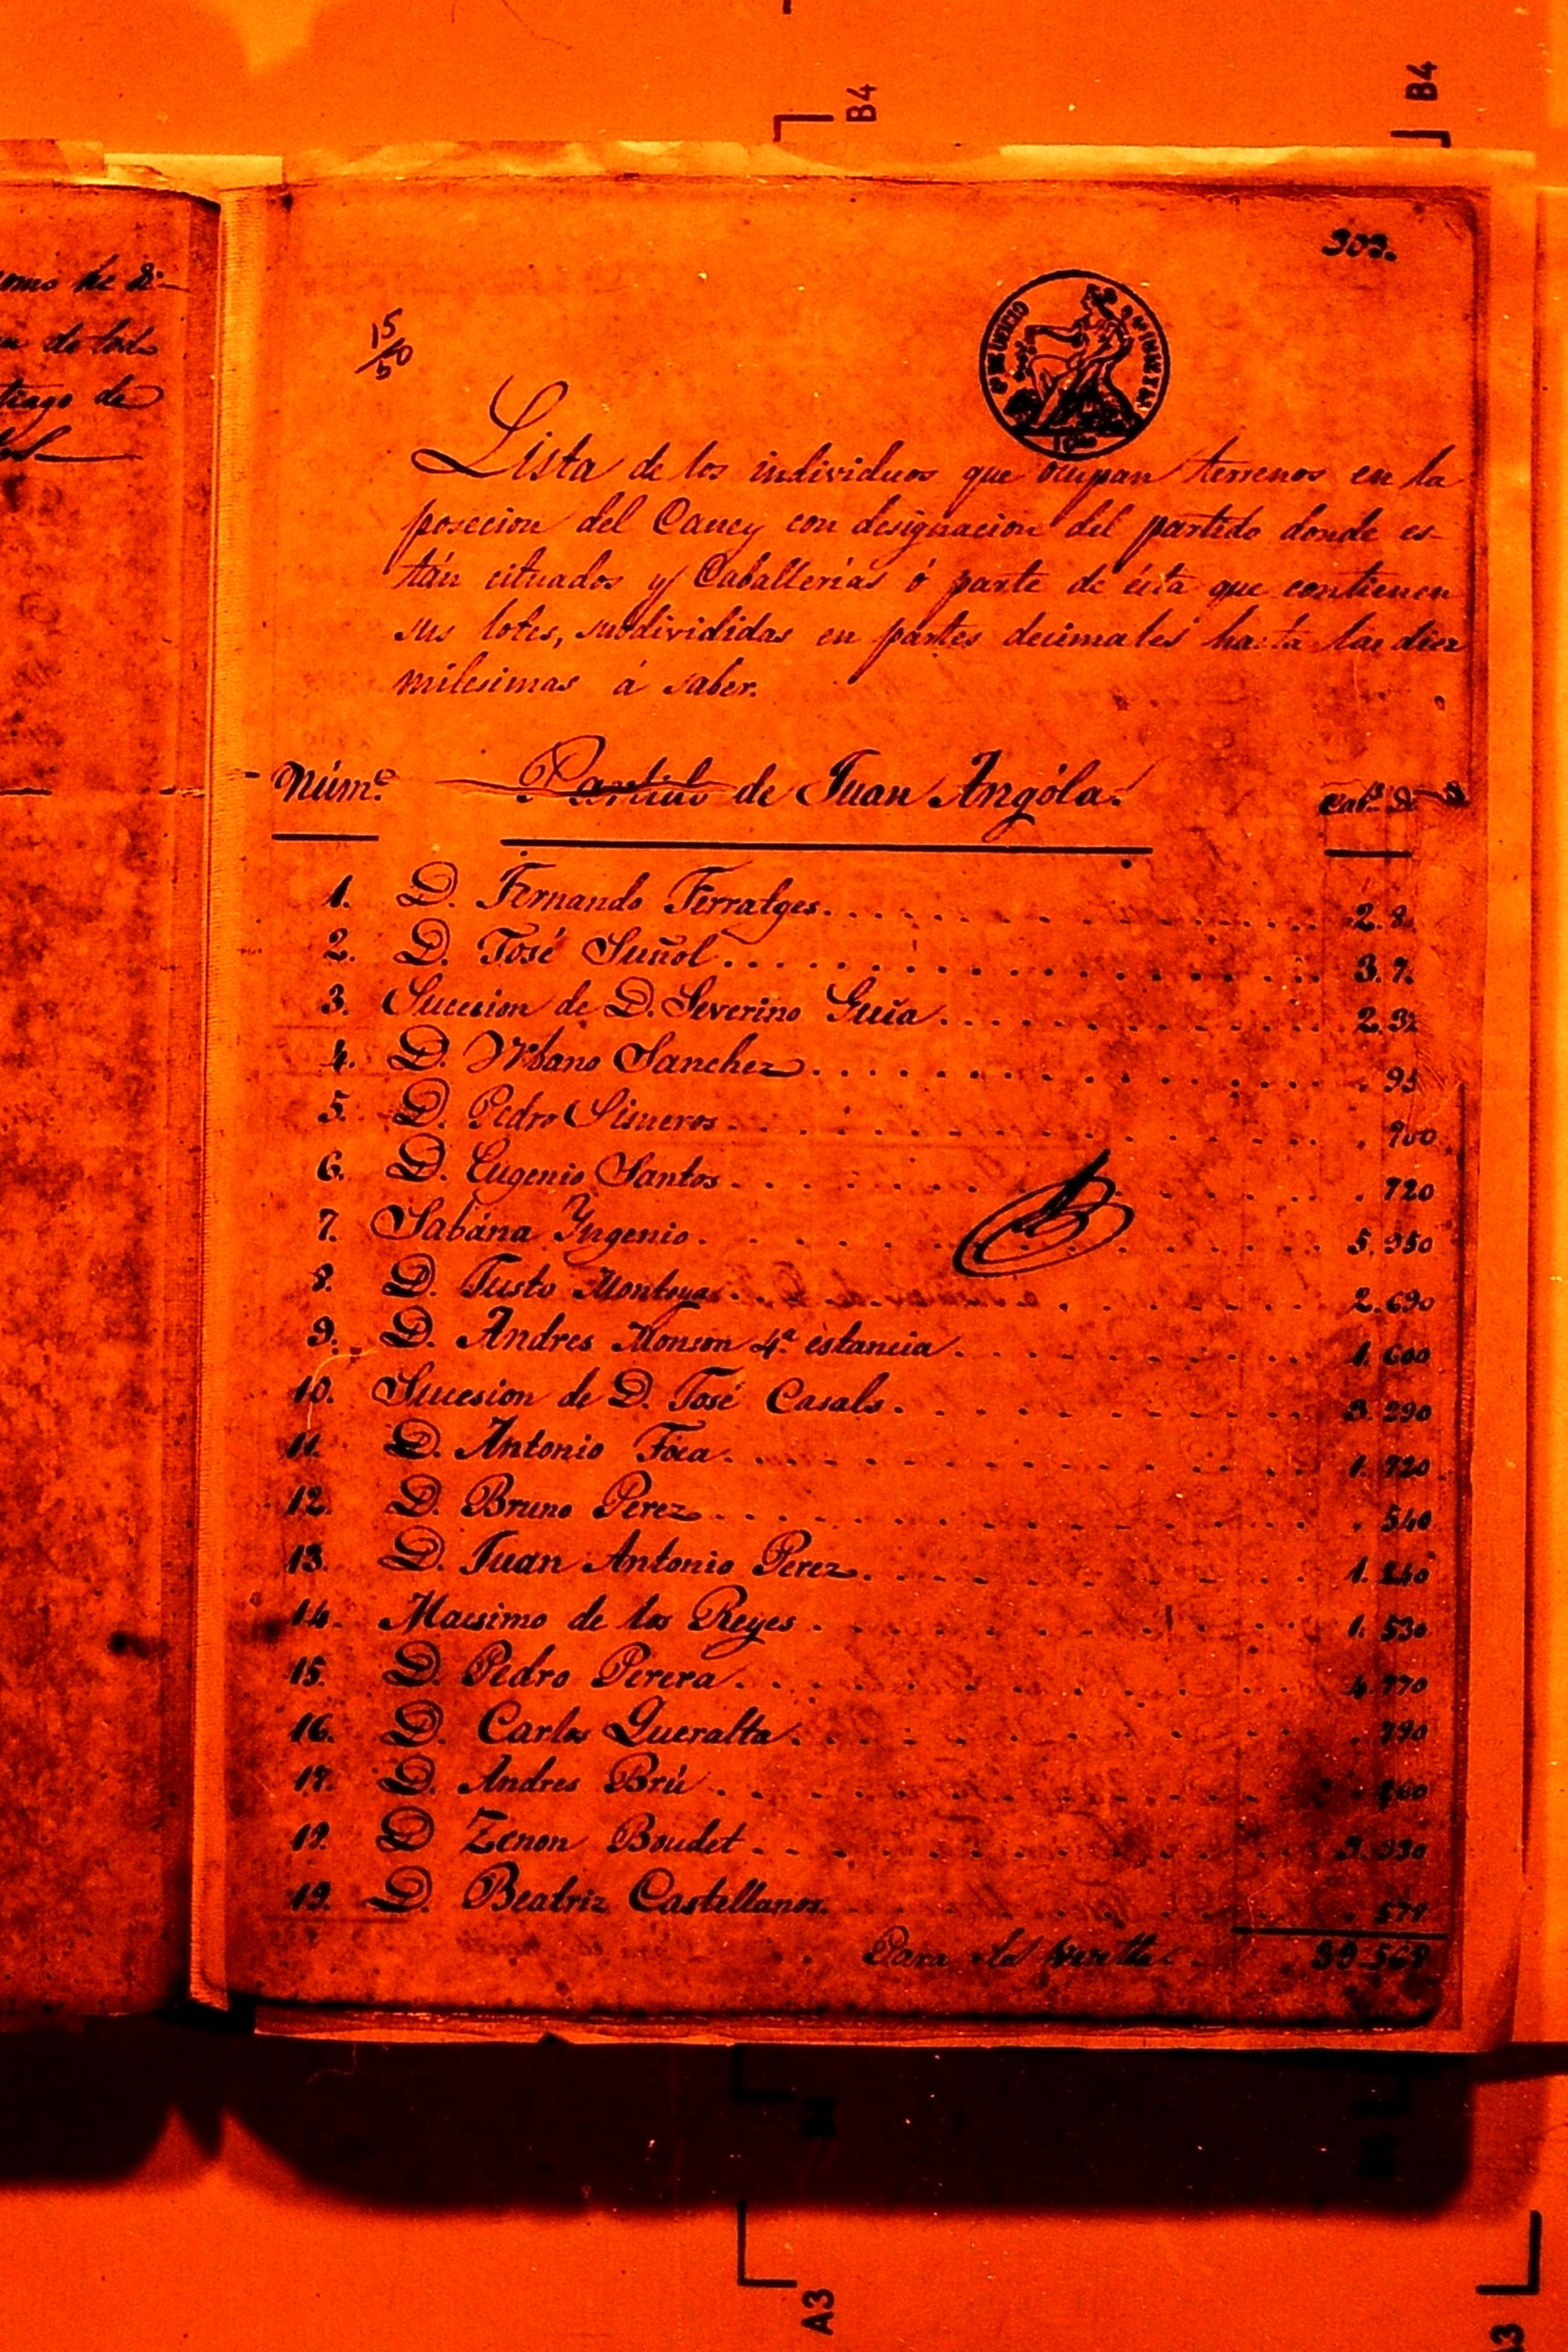 B4
B4
303.
15/50
Lista de los individuos que ocupan terrenos en la
posecion del Caney con designacion del partido donde es-
tán cituados y Caballerías ó parte de ésta que contienen
sus lotes, subdivididas en partes decimales hasta las diez
milesimas á saber.
Núm.º Partido de Juan Angóla. Cab.s
1. D. Fernando Ferratges. 2.8
2. D. José Suñol. 3.7
3. Sucesion de D. Severino Guia. 2.32
4. D. Urbano Sanchez. 95
5. D. Pedro Sisneros. 900
6. D. Eugenio Santos. 720
7. Sabána Yngenio. 5.950
8. D. Justo Montoya. 2.690
9. D. Andres Monson 4ª estancia. 1.600
10. Sucesion de D. José Casals. 3.290
11. D. Antonio 1.720
12. D. Bruno Perez. 540
13. D. Juan Antonio Perez. 1.
14. Macsimo de los Reyes. 1.530
15. D. Pedro Perera. 4.770
16. D. Carlos Queralta. 790
17. D. Andres Brú.
18. D Zenon Boudet.
19. D. Beatriz Castellanos.
Para la vuelta.
como he di-
de toda
tiago de
A3